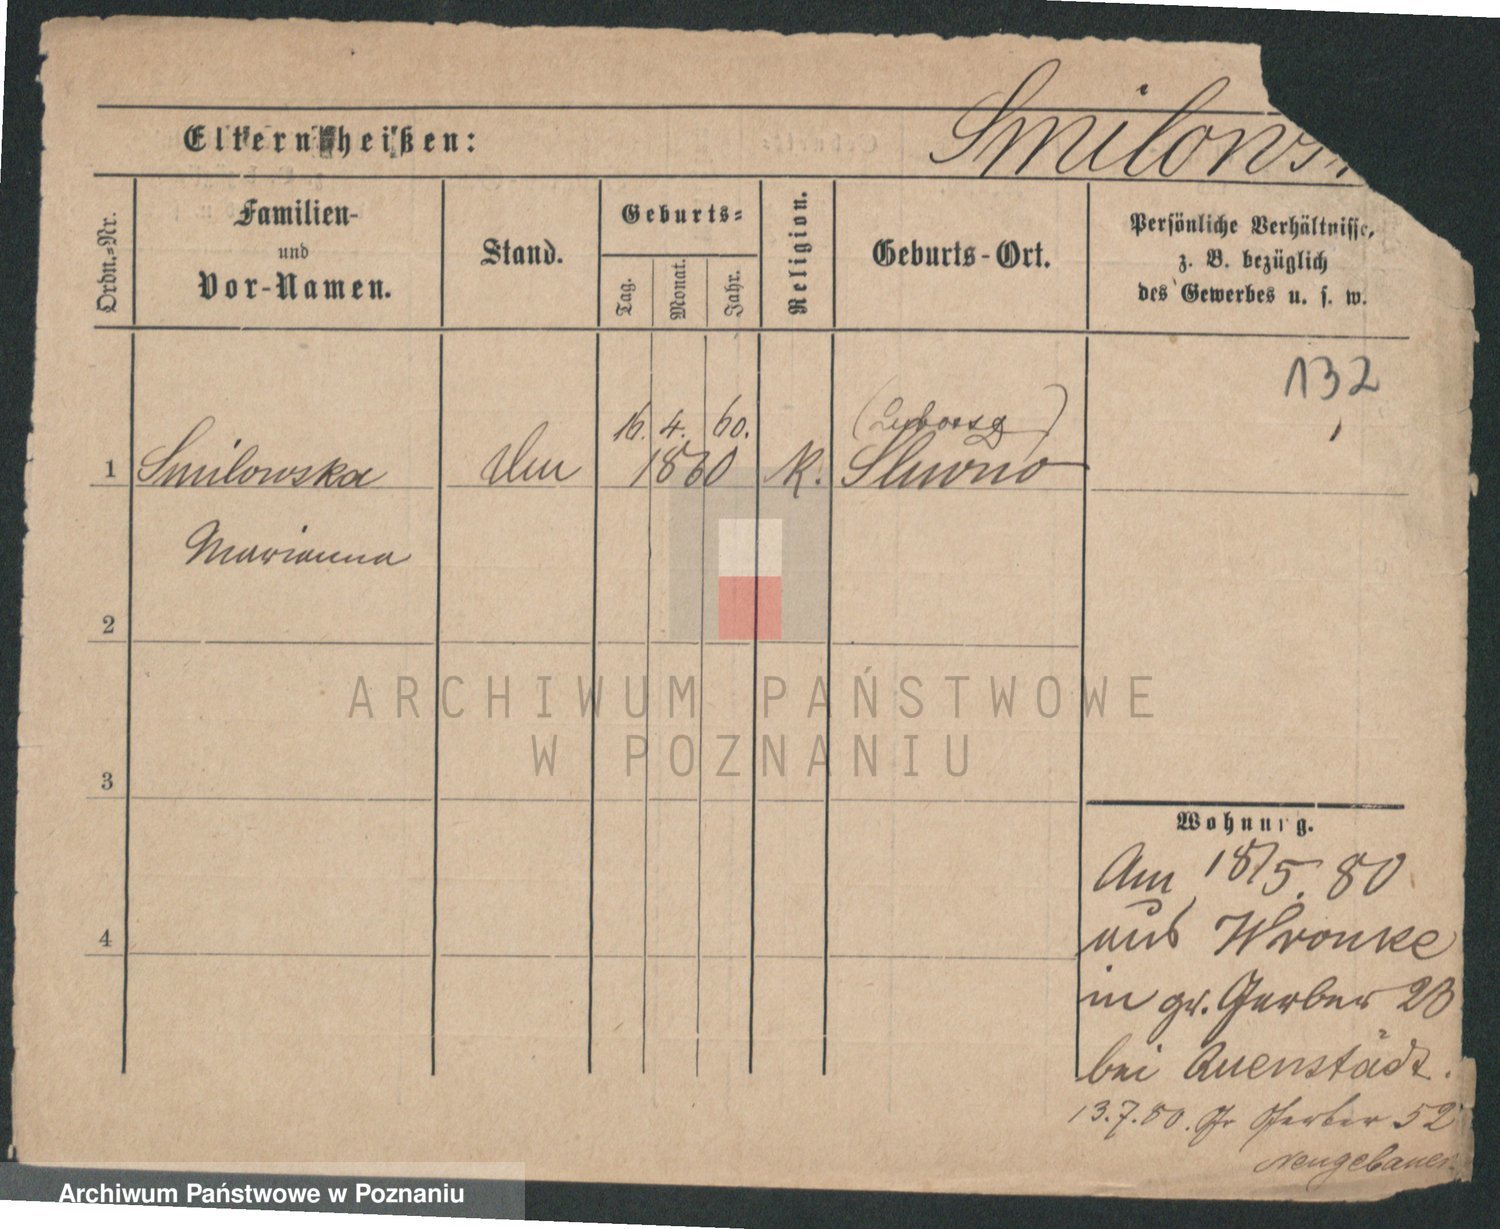 Smilows
Eltern heißen:
Ordn.-Nr.
Familien-
und
Vor-Namen.
Stand.
Geburts-
Tag.
Monat.
Jahr.
Religion.
Geburts-Ort.
Persönliche Verhältnisse,
z. B. bezüglich
des Gewerbes u. s. w.
132
16. 4. 60.
1 Smilowska
1860
k.
Sliwno
Marianna
2
3
4
ARCHIWUM PAŃSTWOWE
W POZNANIU
Wohnung.
Am 18/5. 80
aus Wronke
in gr. Gerber 23
bei Auenstädt.
13.7.80. Gr Gerber 52
Neugebauer
Archiwum Państwowe w Poznaniu